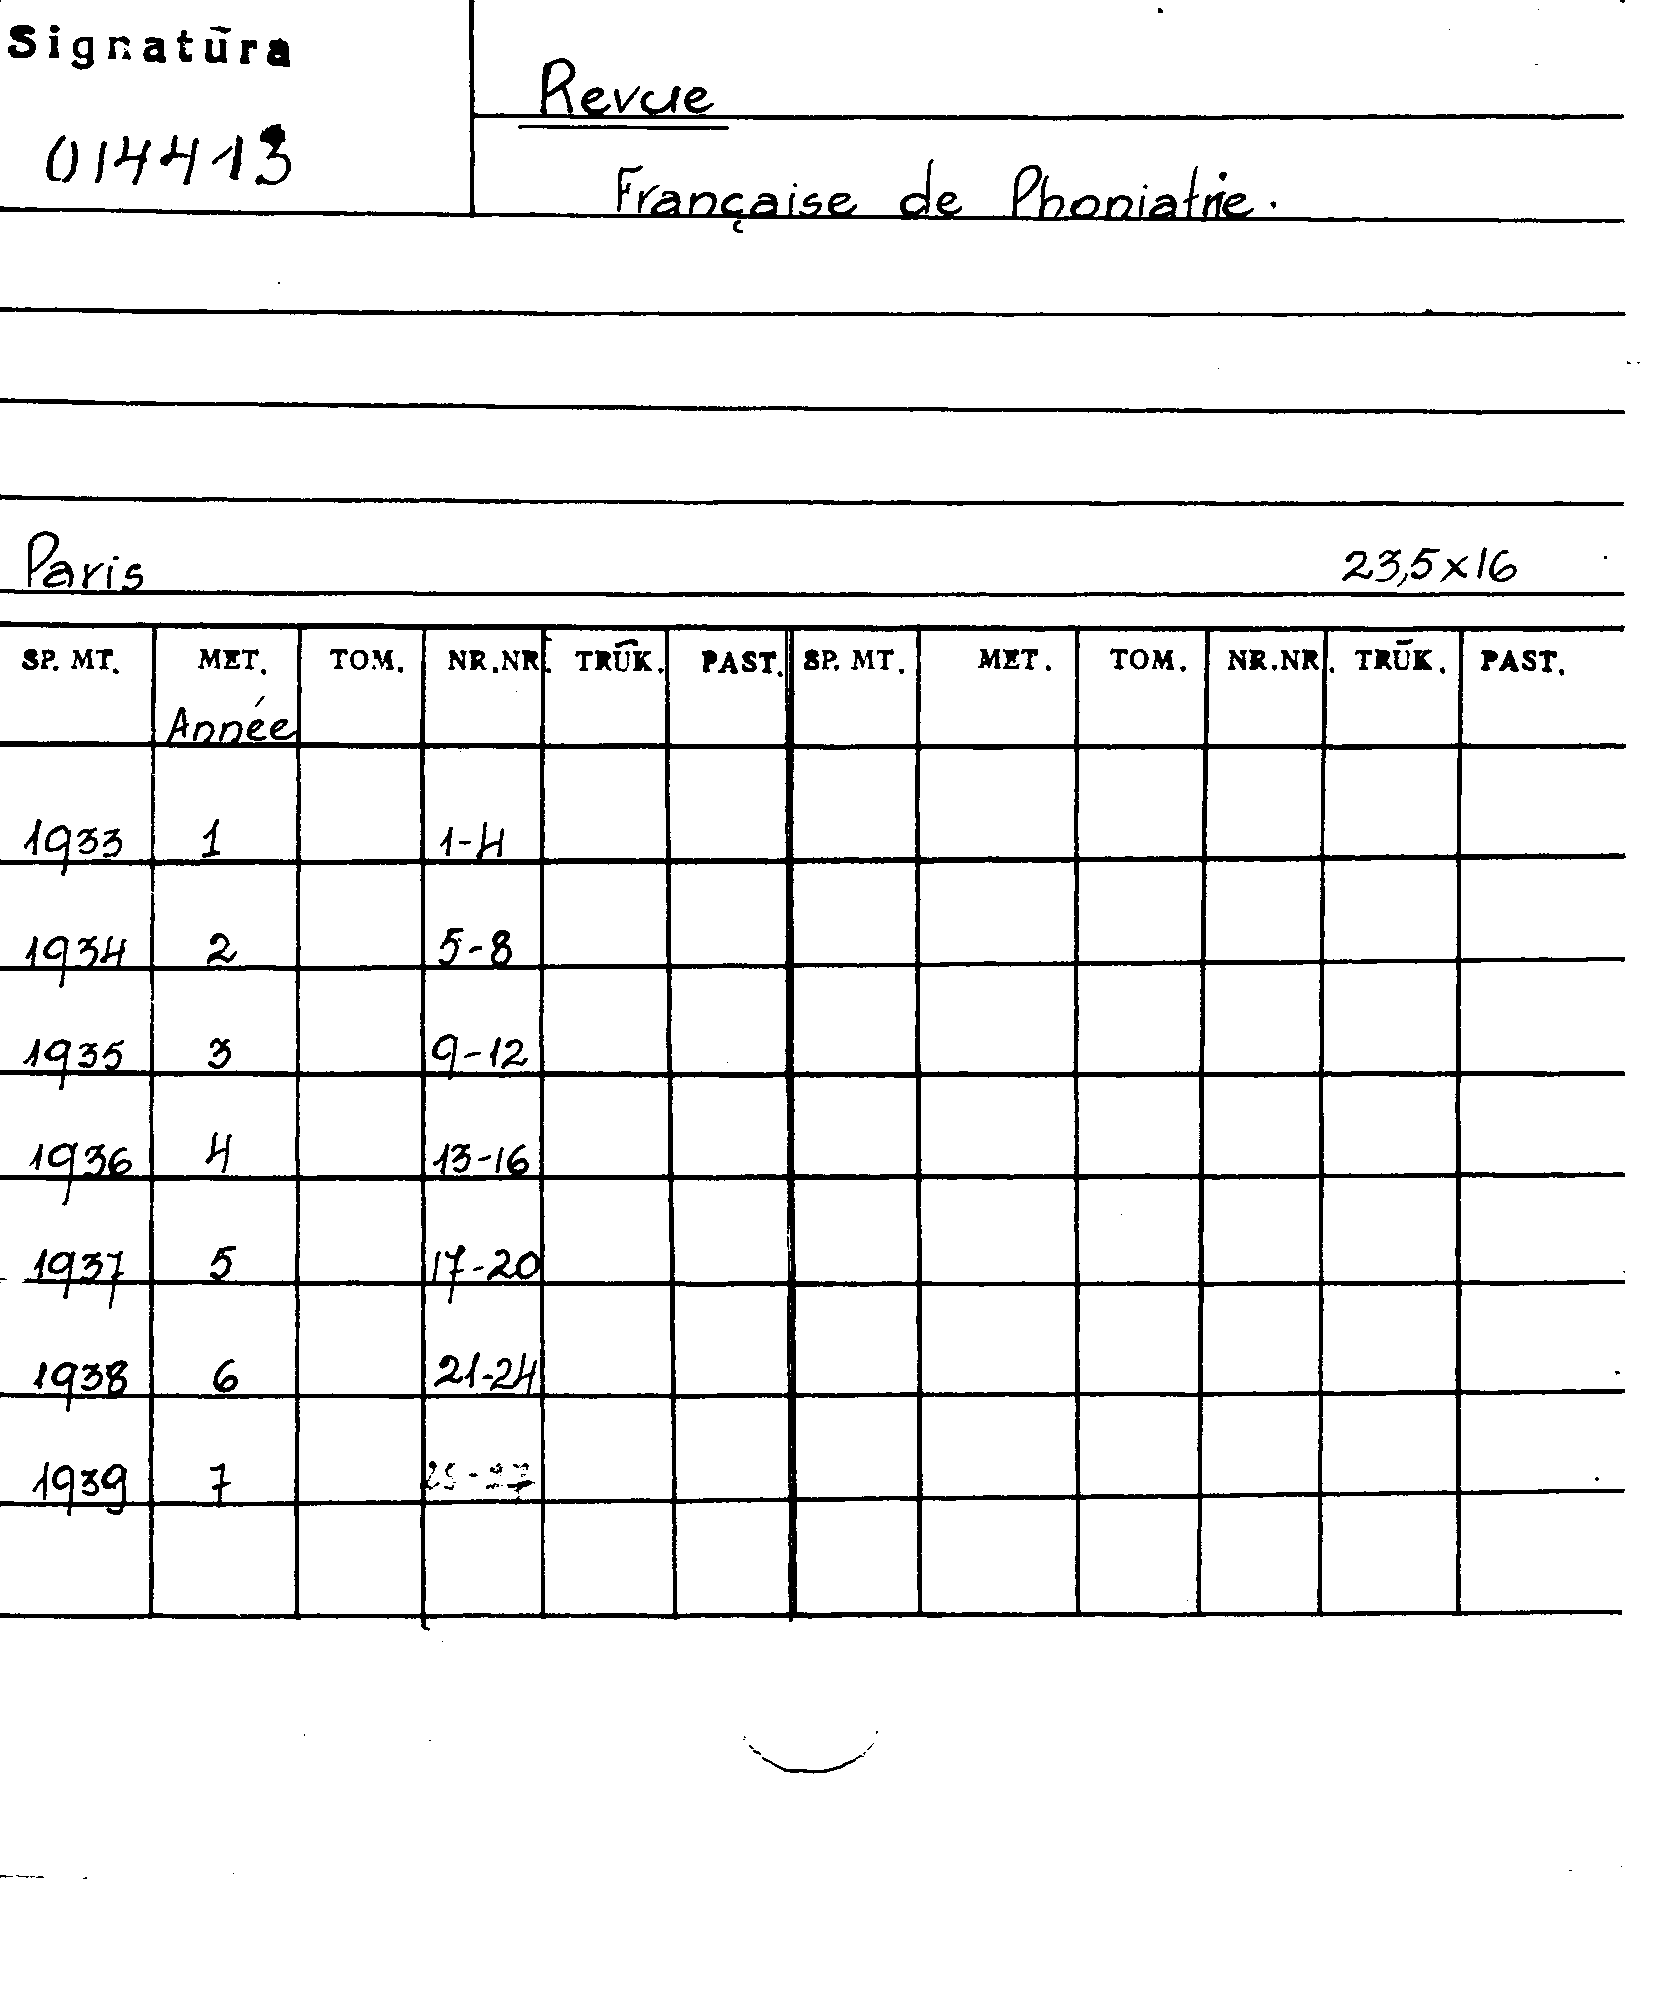 Signatūra
014413
Revue
Française de Phoniatrie.
Paris 23,5x16
SP. MT. MET. TOM. NR.NR. TRŪK. PAST. SP. MT. MET. TOM. NR.NR. TRŪK. PAST.
Année
1933 1 1-4
1934 2 5-8
1935 3 9-12
1936 4 13-16
1937 5 17-20
1938 6 21-24
1939 7 25-27